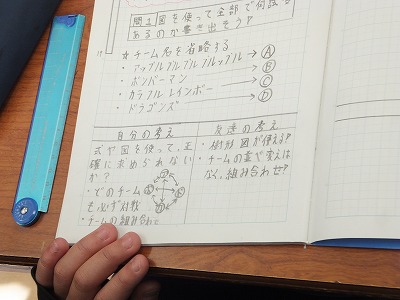 問1 図を使って全部で何試合
あるのか書き出そう?
☆チーム名を省略する
・アップルプルプルプルップル→Ⓐ
・ボンバーマン→Ⓑ
・カラフルレインボー→Ⓒ
・ドラゴンズ→Ⓓ
自分の考え
式や図を使って、正
確に求められない
か?
・どのチーム
も必ず対数
・チームの組み合わせ
友達の考え
・樹形図が使える?
・チームの並べ変えは
なく、組み合わせ?